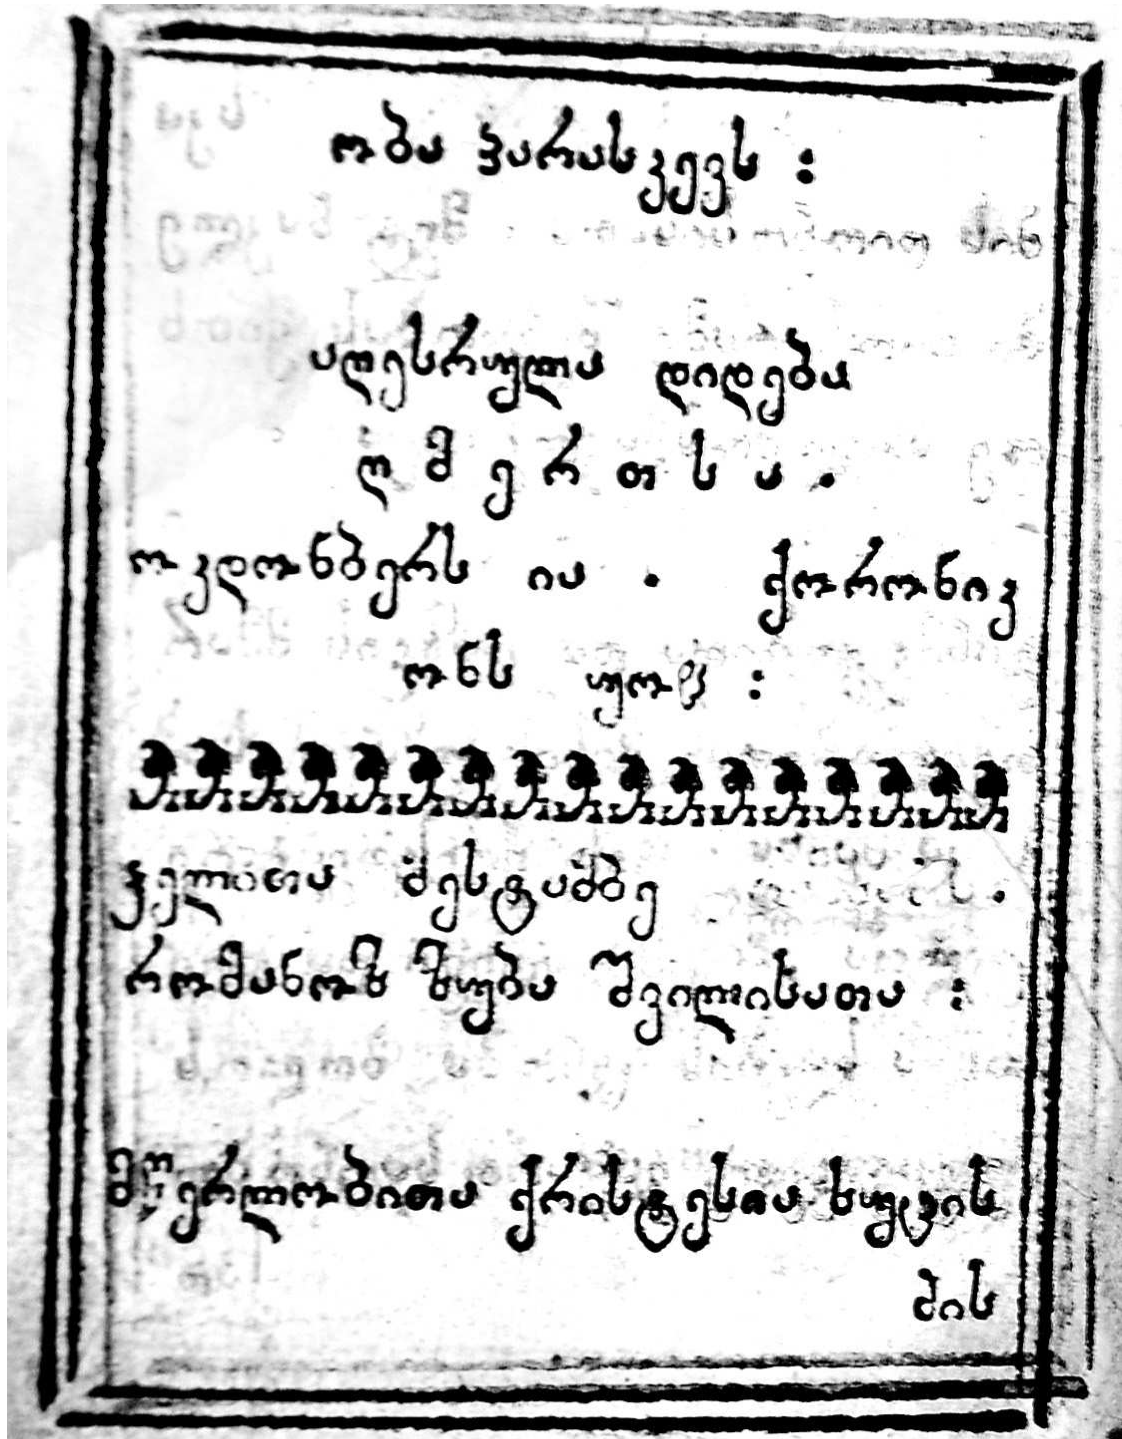 ობა პარასკევს :
აღესრულა დიდება
ღ მ ე რ თ ს ა .
ოკდონბერს ია . ქორონიკ
ონს უოჱ :
ჴელითა მესტამბე .
რომანოზ ზუბა შვილისათა :
მწერლობითა ქრისტესია სჯულის
მის